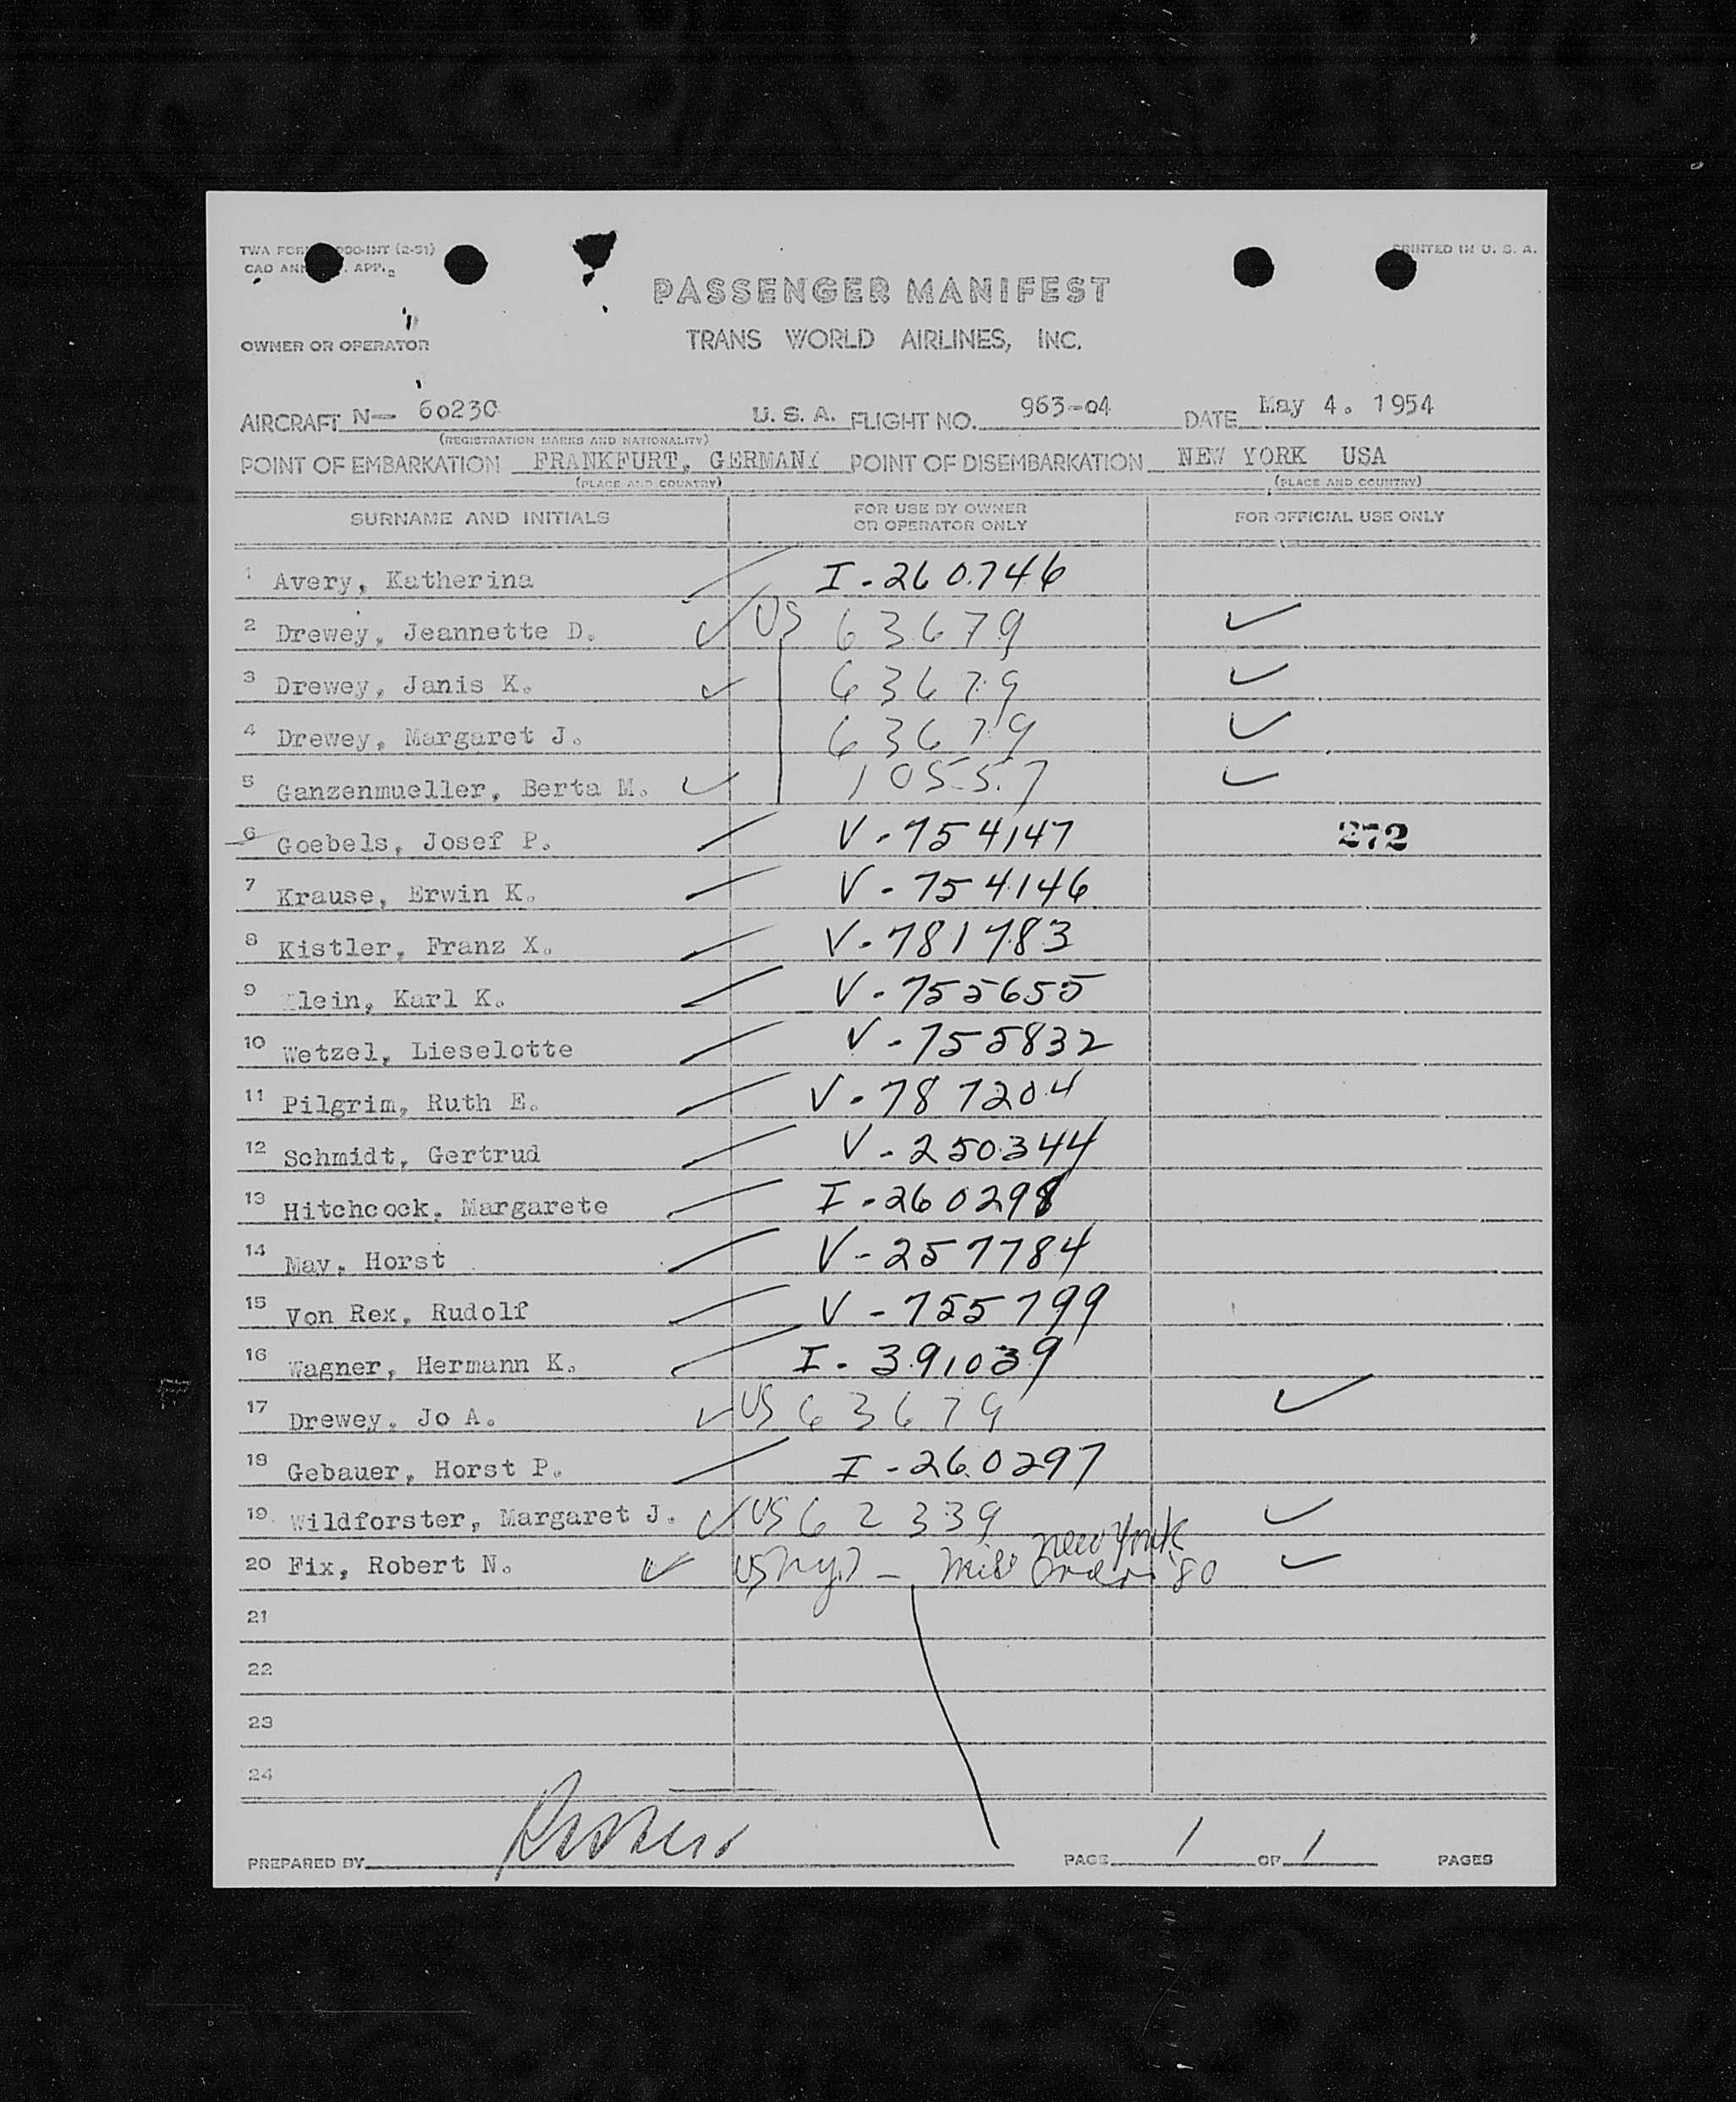 TWA FORM 000-INT (2-51)
PRINTED IN U. S. A.
CAO ANN APP. 2
PASSENGER MANIFEST
OWNER OR OPERATOR
TRANS WORLD AIRLINES, INC.
AIRCRAFT N— 6023C U. S. A. FLIGHT NO. 963-04 DATE May 4. 1954
(REGISTRATION MARKS AND NATIONALITY)
POINT OF EMBARKATION FRANKFURT, GERMANY POINT OF DISEMBARKATION NEW YORK USA
(PLACE AND COUNTRY) (PLACE AND COUNTRY)
SURNAME AND INITIALS FOR USE BY OWNER OR OPERATOR ONLY FOR OFFICIAL USE ONLY
1 Avery, Katherina I-260746
2 Drewey, Jeannette D. ✓ US 63679 ✓
3 Drewey, Janis K. ✓ 63679 ✓
4 Drewey, Margaret J. 63679 ✓
5 Ganzenmueller, Berta M. ✓ 10557 ✓
6 Goebels, Josef P. V-754147 272
7 Krause, Erwin K. V-754146
8 Kistler, Franz X. V-781783
9 lein, Karl K. V-755655
10 Wetzel, Lieselotte V-755832
11 Pilgrim, Ruth E. V-787204
12 Schmidt, Gertrud V-250344
13 Hitchcock, Margarete I-260298
14 May, Horst V-257784
15 Von Rex, Rudolf V-755799
16 Wagner, Hermann K. I-391039
17 Drewey, Jo A. ✓ US 63679 ✓
18 Gebauer, Horst P. I-260297
19 Wildforster, Margaret J. ✓ US 62339 ✓
20 Fix, Robert N. ✓ US New York 80 ✓
21
22
23
24
PREPARED BY PAGE 1 OF 1 PAGES